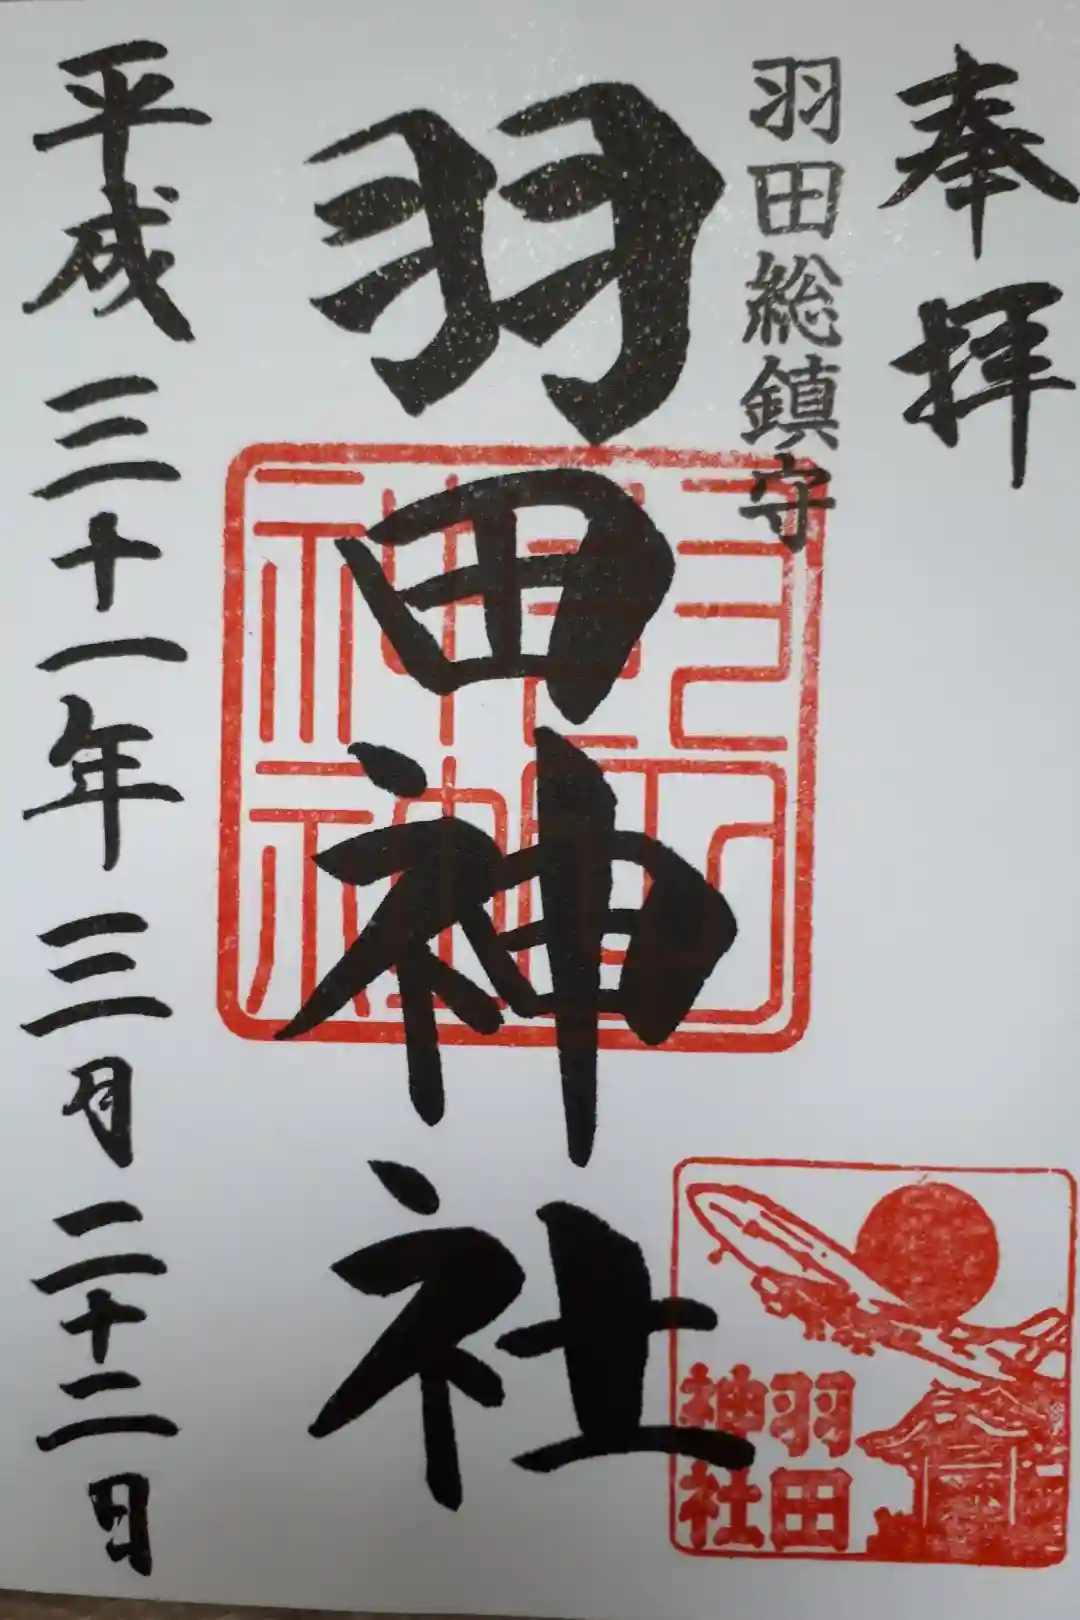 奉拝
羽田総鎮守
羽田神社
平成三十一年三月二十二日
羽田
神社